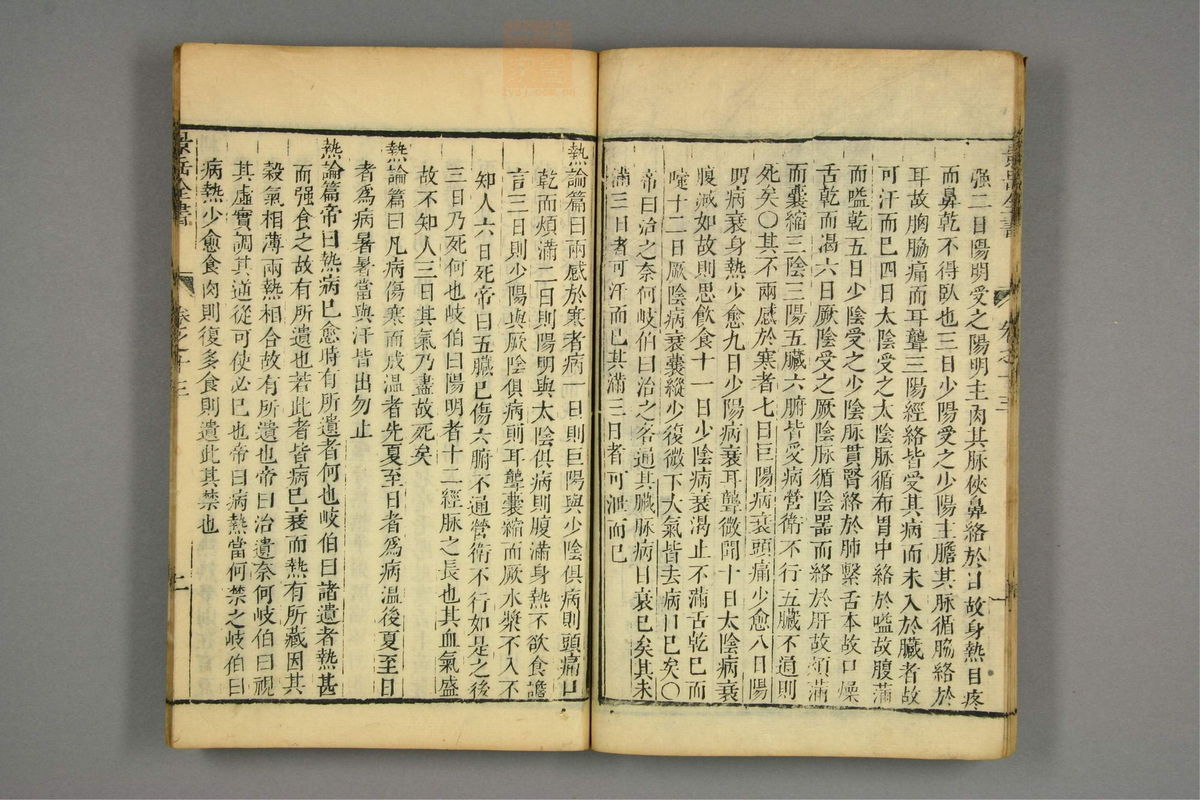 強二日陽明受之陽明主肉其脉俠鼻絡於目故身熱目疼
而鼻乾不得臥也三日少陽受之少陽主膽其脉循脇絡於
耳故胸脇痛而耳聾三陽經絡皆受其病而未入於臟者故
可汗而已四日太陰受之太陰脉循布胃中絡於嗌故腹滿
而嗌乾五日少陰受之少陰脉貫腎絡於肺繫舌本故口燥
舌乾而渴六日厥陰受之厥陰脉循陰器而絡於肝故煩滿
而囊縮三陰三陽五臟六腑皆受病營衛不行五臟不通則
死矣〇其不兩感於寒者七日巨陽病衰頭痛少愈八日陽
明病衰身熱少愈九日少陽病衰耳聾微聞十日太陰病衰
腹減如故則思飲食十一日少陰病衰渴止不滿舌乾已而
嚏十二日厥陰病衰囊縱少復微下大氣皆去病日已矣〇
帝曰治之奈何岐伯曰治之各通其臟脉病日衰已矣其未
滿三日者可汗而已其滿三日者可泄而已
熱論篇曰兩感於寒者病一日則巨陽與少陰俱病則頭痛口
乾而煩滿二日則陽明與太陰俱病則腹滿身熱不欲食譫
言三日則少陽與厥陰俱病則耳聾囊縮而厥水漿不入不
知人六日死帝曰五臟已傷六腑不通營衛不行如是之後
三日乃死何也岐伯曰陽明者十二經脉之長也其血氣盛
故不知人三日其氣乃盡故死矣
熱論篇曰凡病傷寒而成溫者先夏至日者爲病溫後夏至日
者爲病暑暑當與汗皆出勿止
熱論篇帝曰熱病已愈時有所遺者何也岐伯曰諸遺者熱甚
而强食之故有所遺也若此者皆病已衰而熱有所藏因其
穀氣相薄兩熱相合故有所遺也帝曰治遺奈何岐伯曰視
其虛實調其逆從可使必已也帝曰病熱當何禁之岐伯曰
病熱少愈食肉則復多食則遺此其禁也
景岳全書
卷之
三